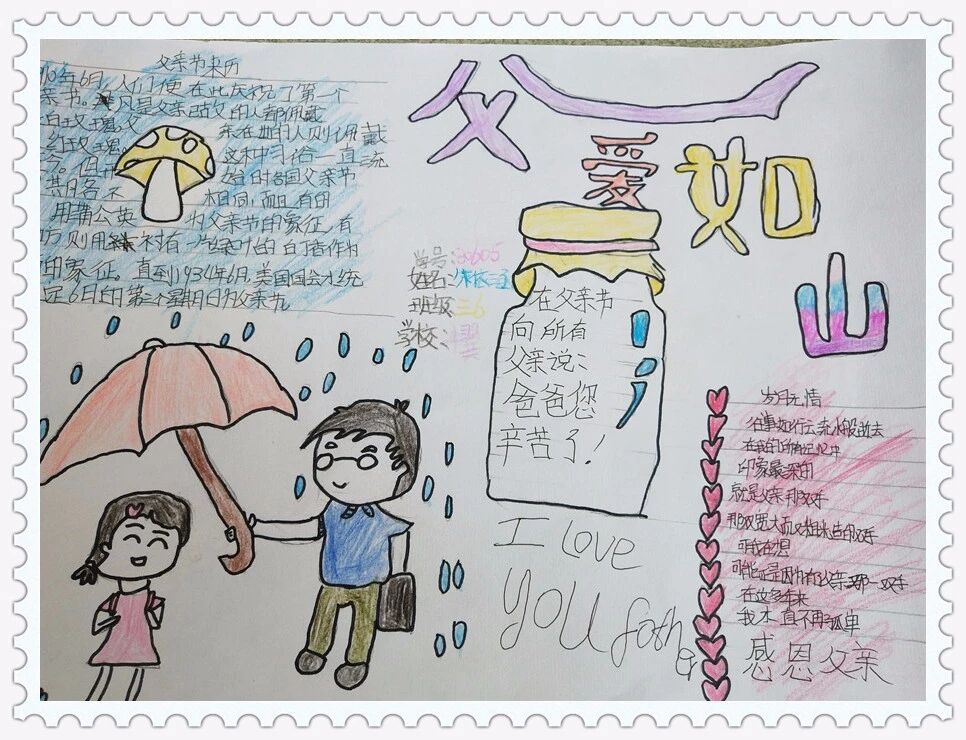 父亲节来历
10年6月，人们便在此庆祝了第一个
亲节。凡是父亲已故的人都佩戴
白玫瑰，父亲在世的人则佩戴
红玫瑰。这种习俗一直流
今。但
其月各不相同，而且有的
用蒲公英为父亲节的象征，有
的则用衬有一片绿叶的白丁香作为
印象征。直到1934年6月，美国国会才统
定6月的第三个星期日为父亲节。
父爱如山
学号：
姓名：
班级：三6
学校：
在父亲节
向所有
父亲说：
爸爸您
辛苦了！
I Love
YOU father
岁月无情
往事如行云流水般逝去
在我的所有记忆中
印象最深的
就是父亲那双手
那双宽大而又粗糙的双手
可我在想
可能正是因为有父亲那一双手
在这多年来
我才一直不再孤单
感恩父亲